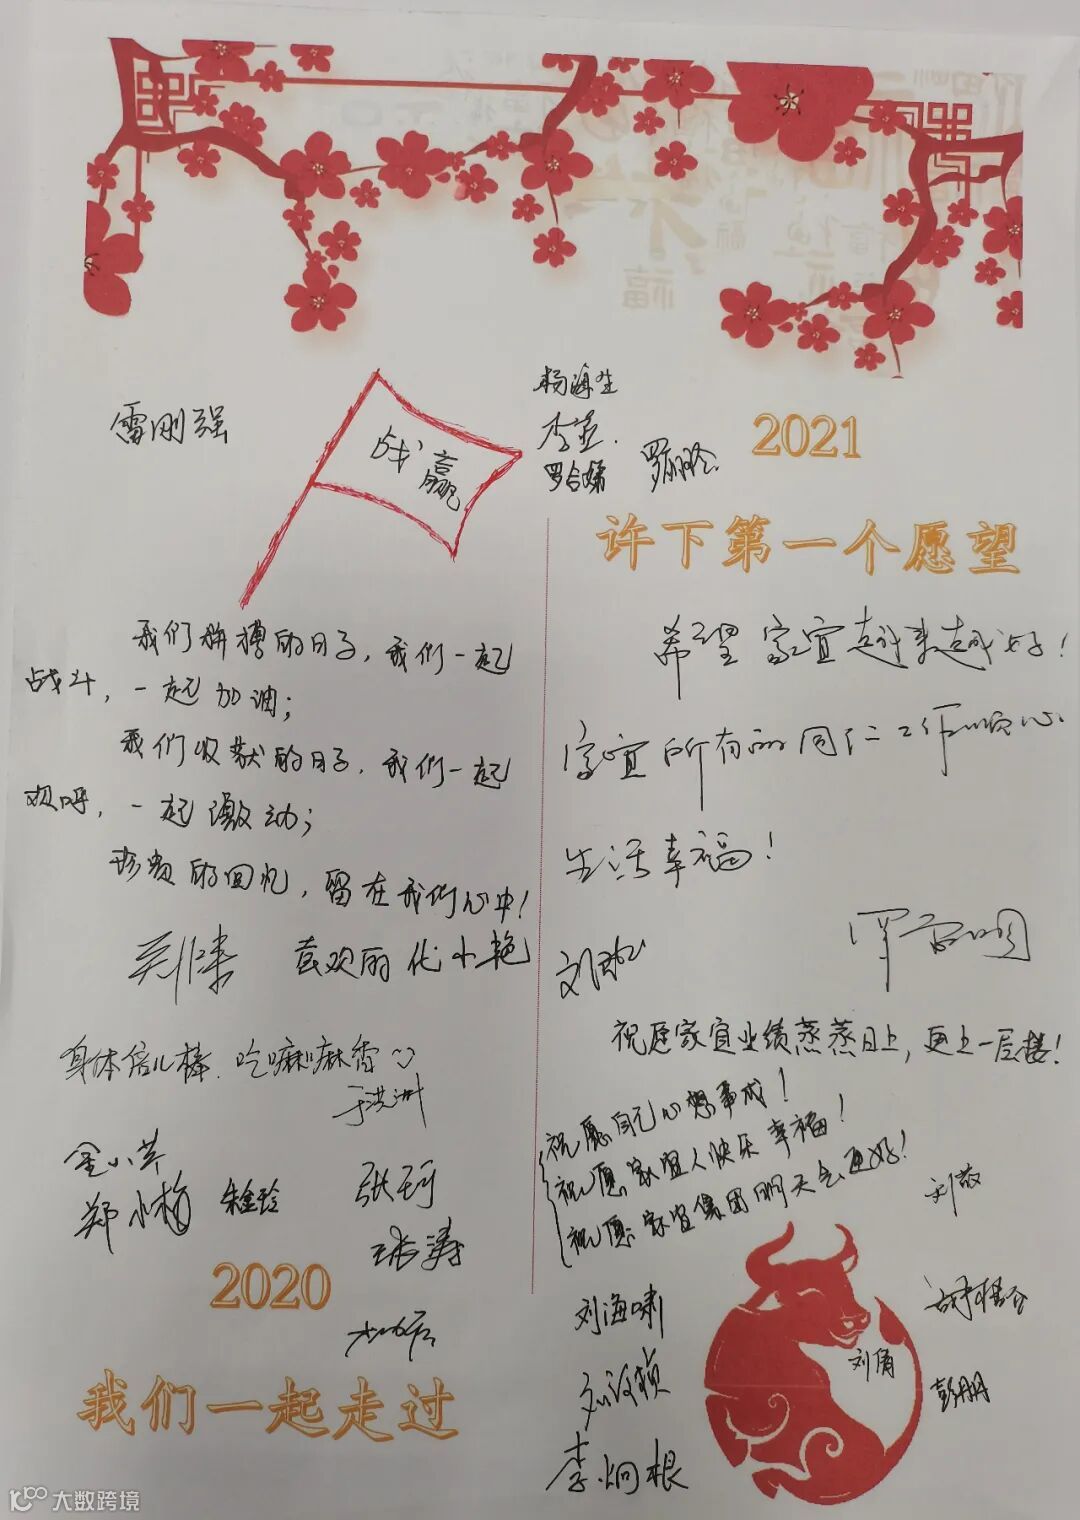 雷刚强
战赢
杨海生
2021
许下第一个愿望
我们拼搏的日子，我们一起
战斗，一起加油；
我们收获的日子，我们一起
欢呼，一起激动；
珍贵的回忆，留在我们心中！
身体倍儿棒，吃嘛嘛香
于洪洲
金小芹
郑小梅
朱金玲
张珂
2020
我们一起走过
希望家宜越来越好！
家宜所有的同仁工作顺心
生活幸福！
祝愿家宜业绩蒸蒸日上，更上一层楼！
祝愿自己心想事成！
祝愿家宜人快乐幸福！
祝愿家宜集团明天会更好！
刘敬
刘海啸
刘倩
彭朋
李炯根
大数跨境